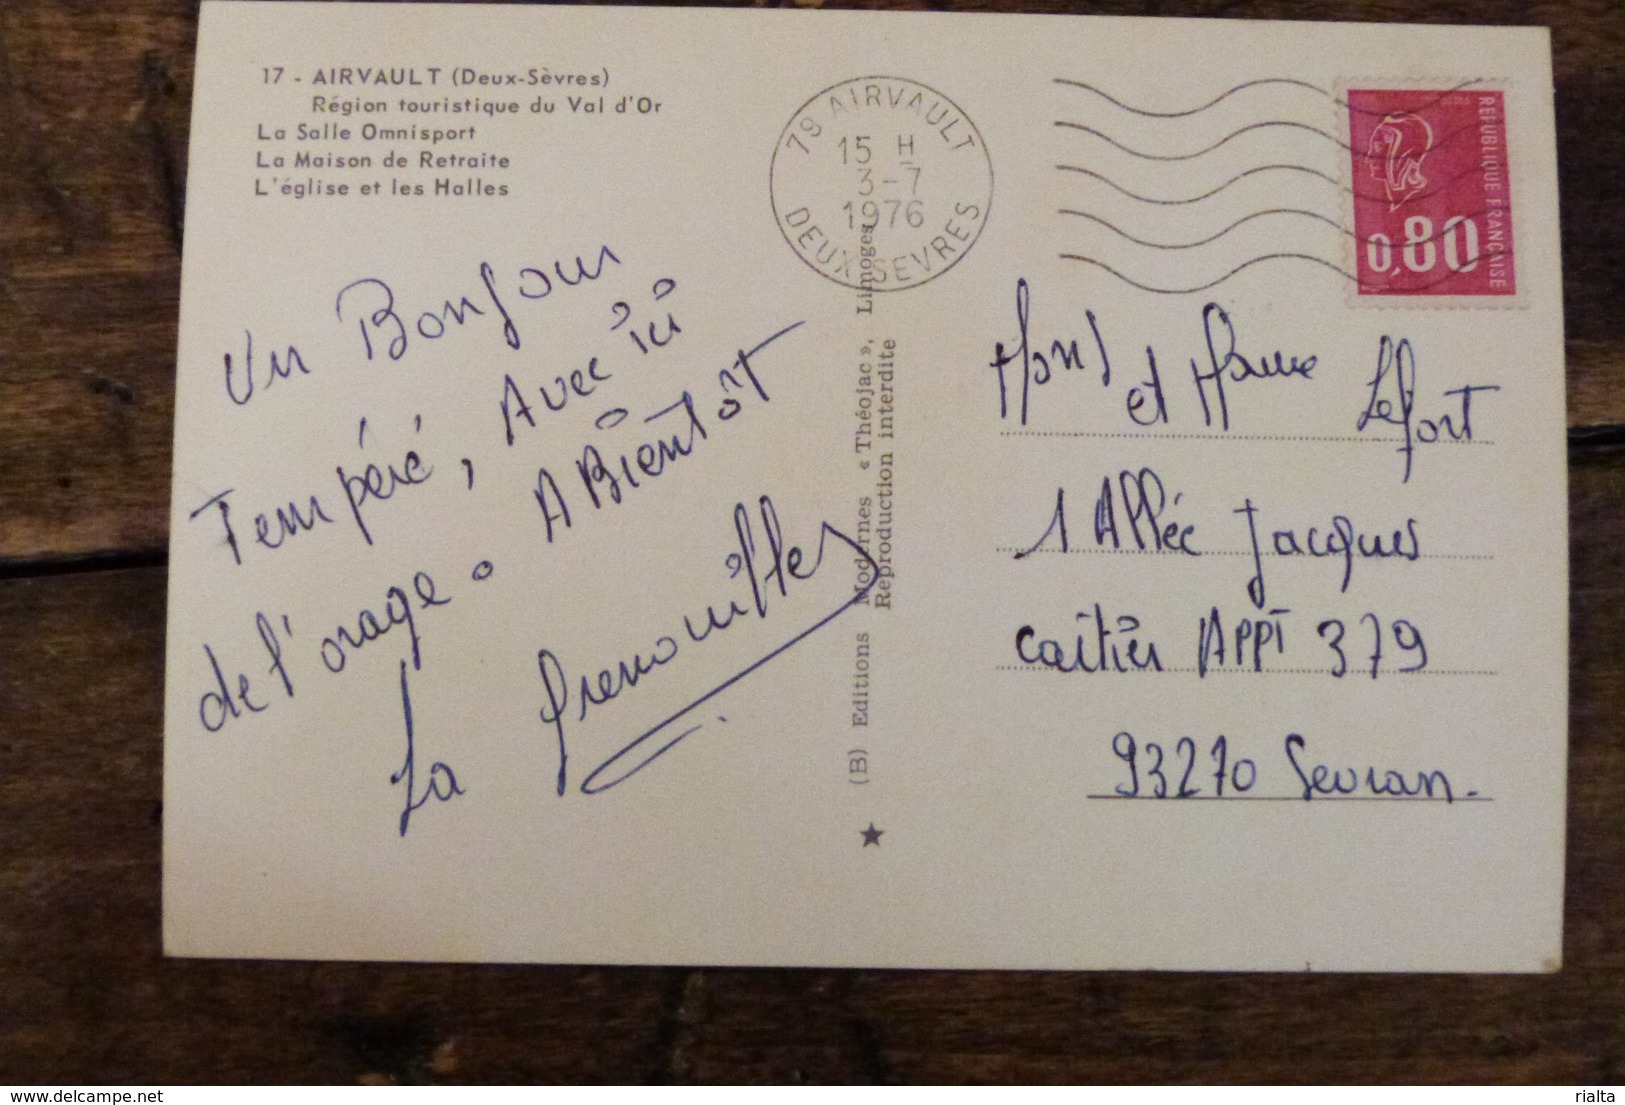 17 - AIRVAULT (Deux-Sèvres)
Région touristique du Val d'Or
La Salle Omnisport
La Maison de Retraite
L'église et les Halles
79 AIRVAULT
15 H
3-7
1976
DEUX SEVRES
REPUBLIQUE FRANÇAISE
0,80
Un Bonjour
Tempéré, Avec ici
de l'orage. A Bientôt
La grenouille
(B) Editions Modernes « Théojac », Limoges
Reproduction interdite
Mons et Mame Lefort
1 Allée Jacques
Cartier APPT 379
93270 Sevran.
delcampe.net
rialta